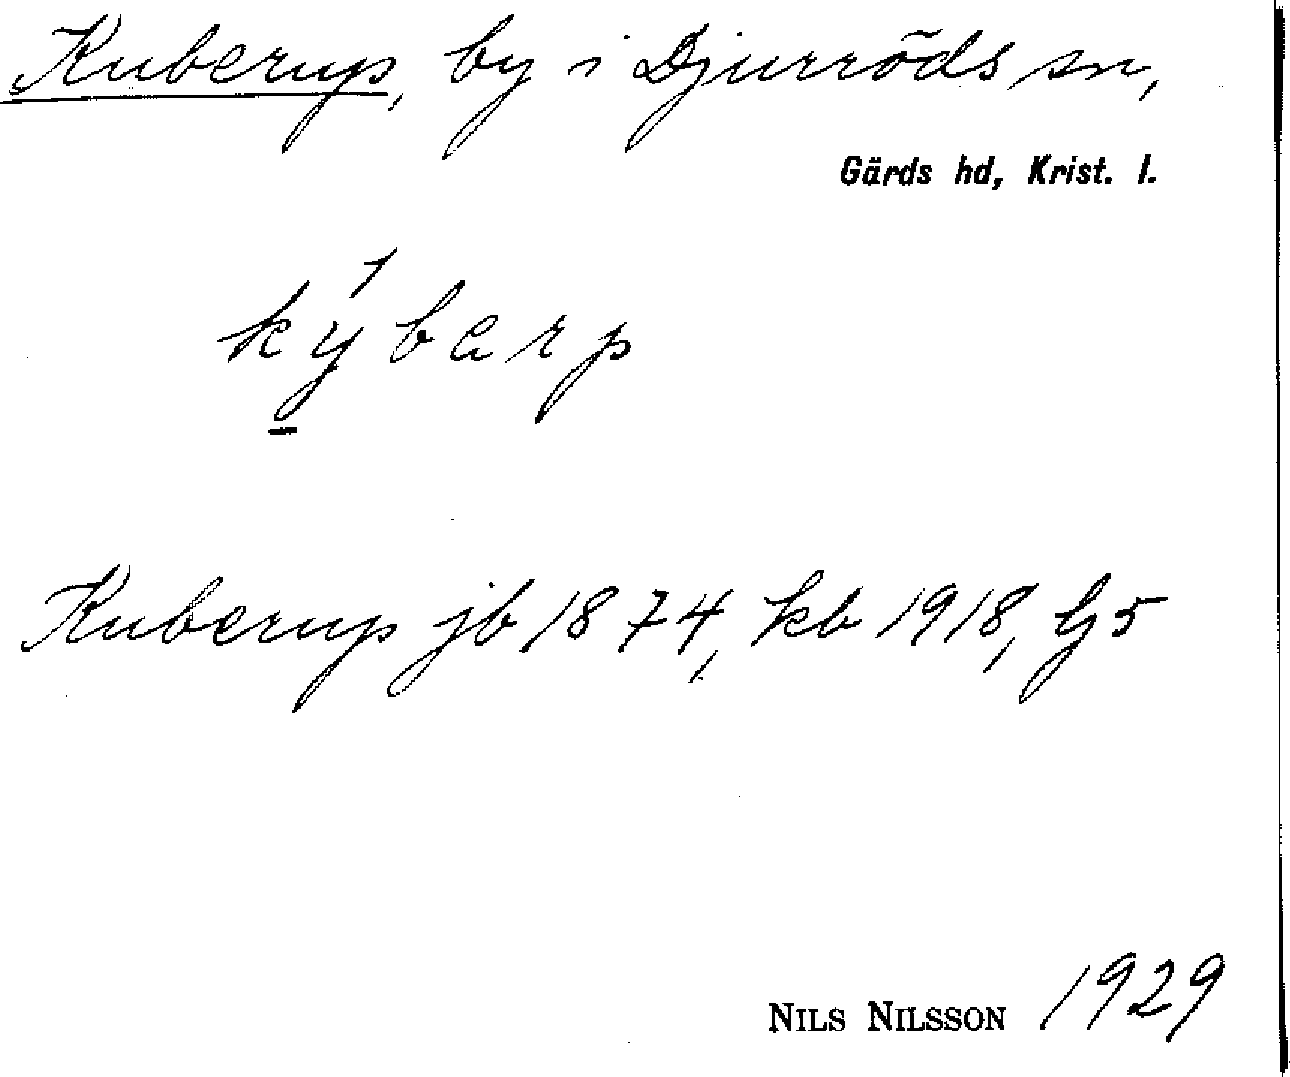 Kuberup, by i Djurröds sn,
Gärds hd, Krist. l.
kýbarp
Kuberup jb 1874, kb 1918, G5
NILS NILSSON 1929